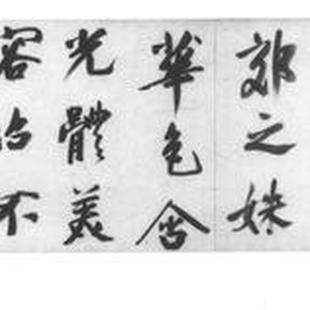 郊之姝
華色含
光體美
容冶不